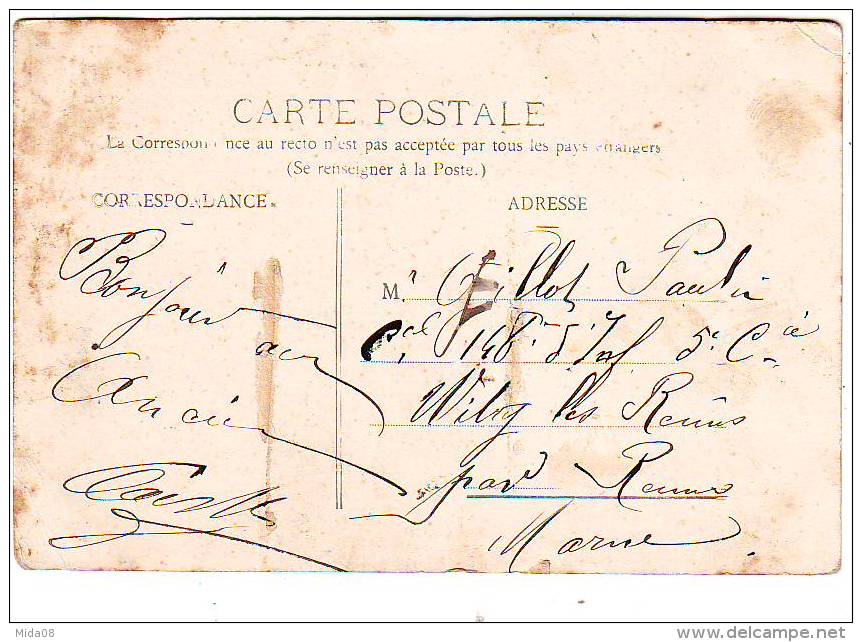 CARTE POSTALE
La Correspondance au recto n'est pas acceptée par tous les pays étrangers
(Se renseigner à la Poste.)
CORRESPONDANCE
ADRESSE
Bonjour
aux
Anciens
Mr Gillot Paulin
Cal 148e d'Inf 5e Cie
Witry les Reims
par Reims
Marne
Mida08
delcampe.net